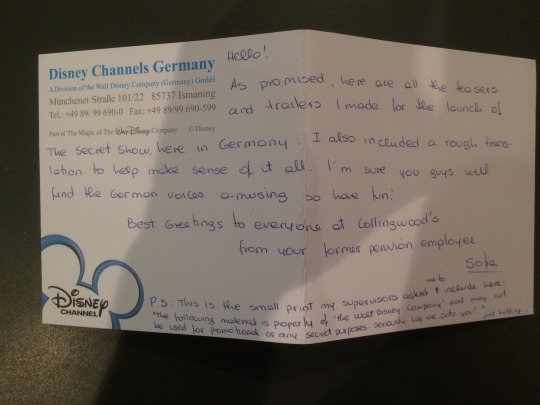 Disney Channels Germany
A Division of the Walt Disney Company (Germany) GmbH
Münchener Straße 101/22 85737 Ismaning
Tel.: +49 89/ 99 690-0 Fax: +49 89/99 690-599
Part of The Magic of The Walt Disney Company © Disney
Hello!
As promised, here are all the teasers
and trailers I made for the launch of
The Secret Show, here in Germany. I also included a rough trans-
lation to help make sense of it all. I'm sure you guys will
find the German voices a-musing so have fun!
Best Greetings to everyone at Collingwood's
from your former peruvian employee
Disney
CHANNEL
P.S: This is the small print my supervisors asked me to include here:
"The following material is property of 'the Walt Disney Company' and may not
be used for promotional or any secret purposes seriously. We are onto you!" just kidding...